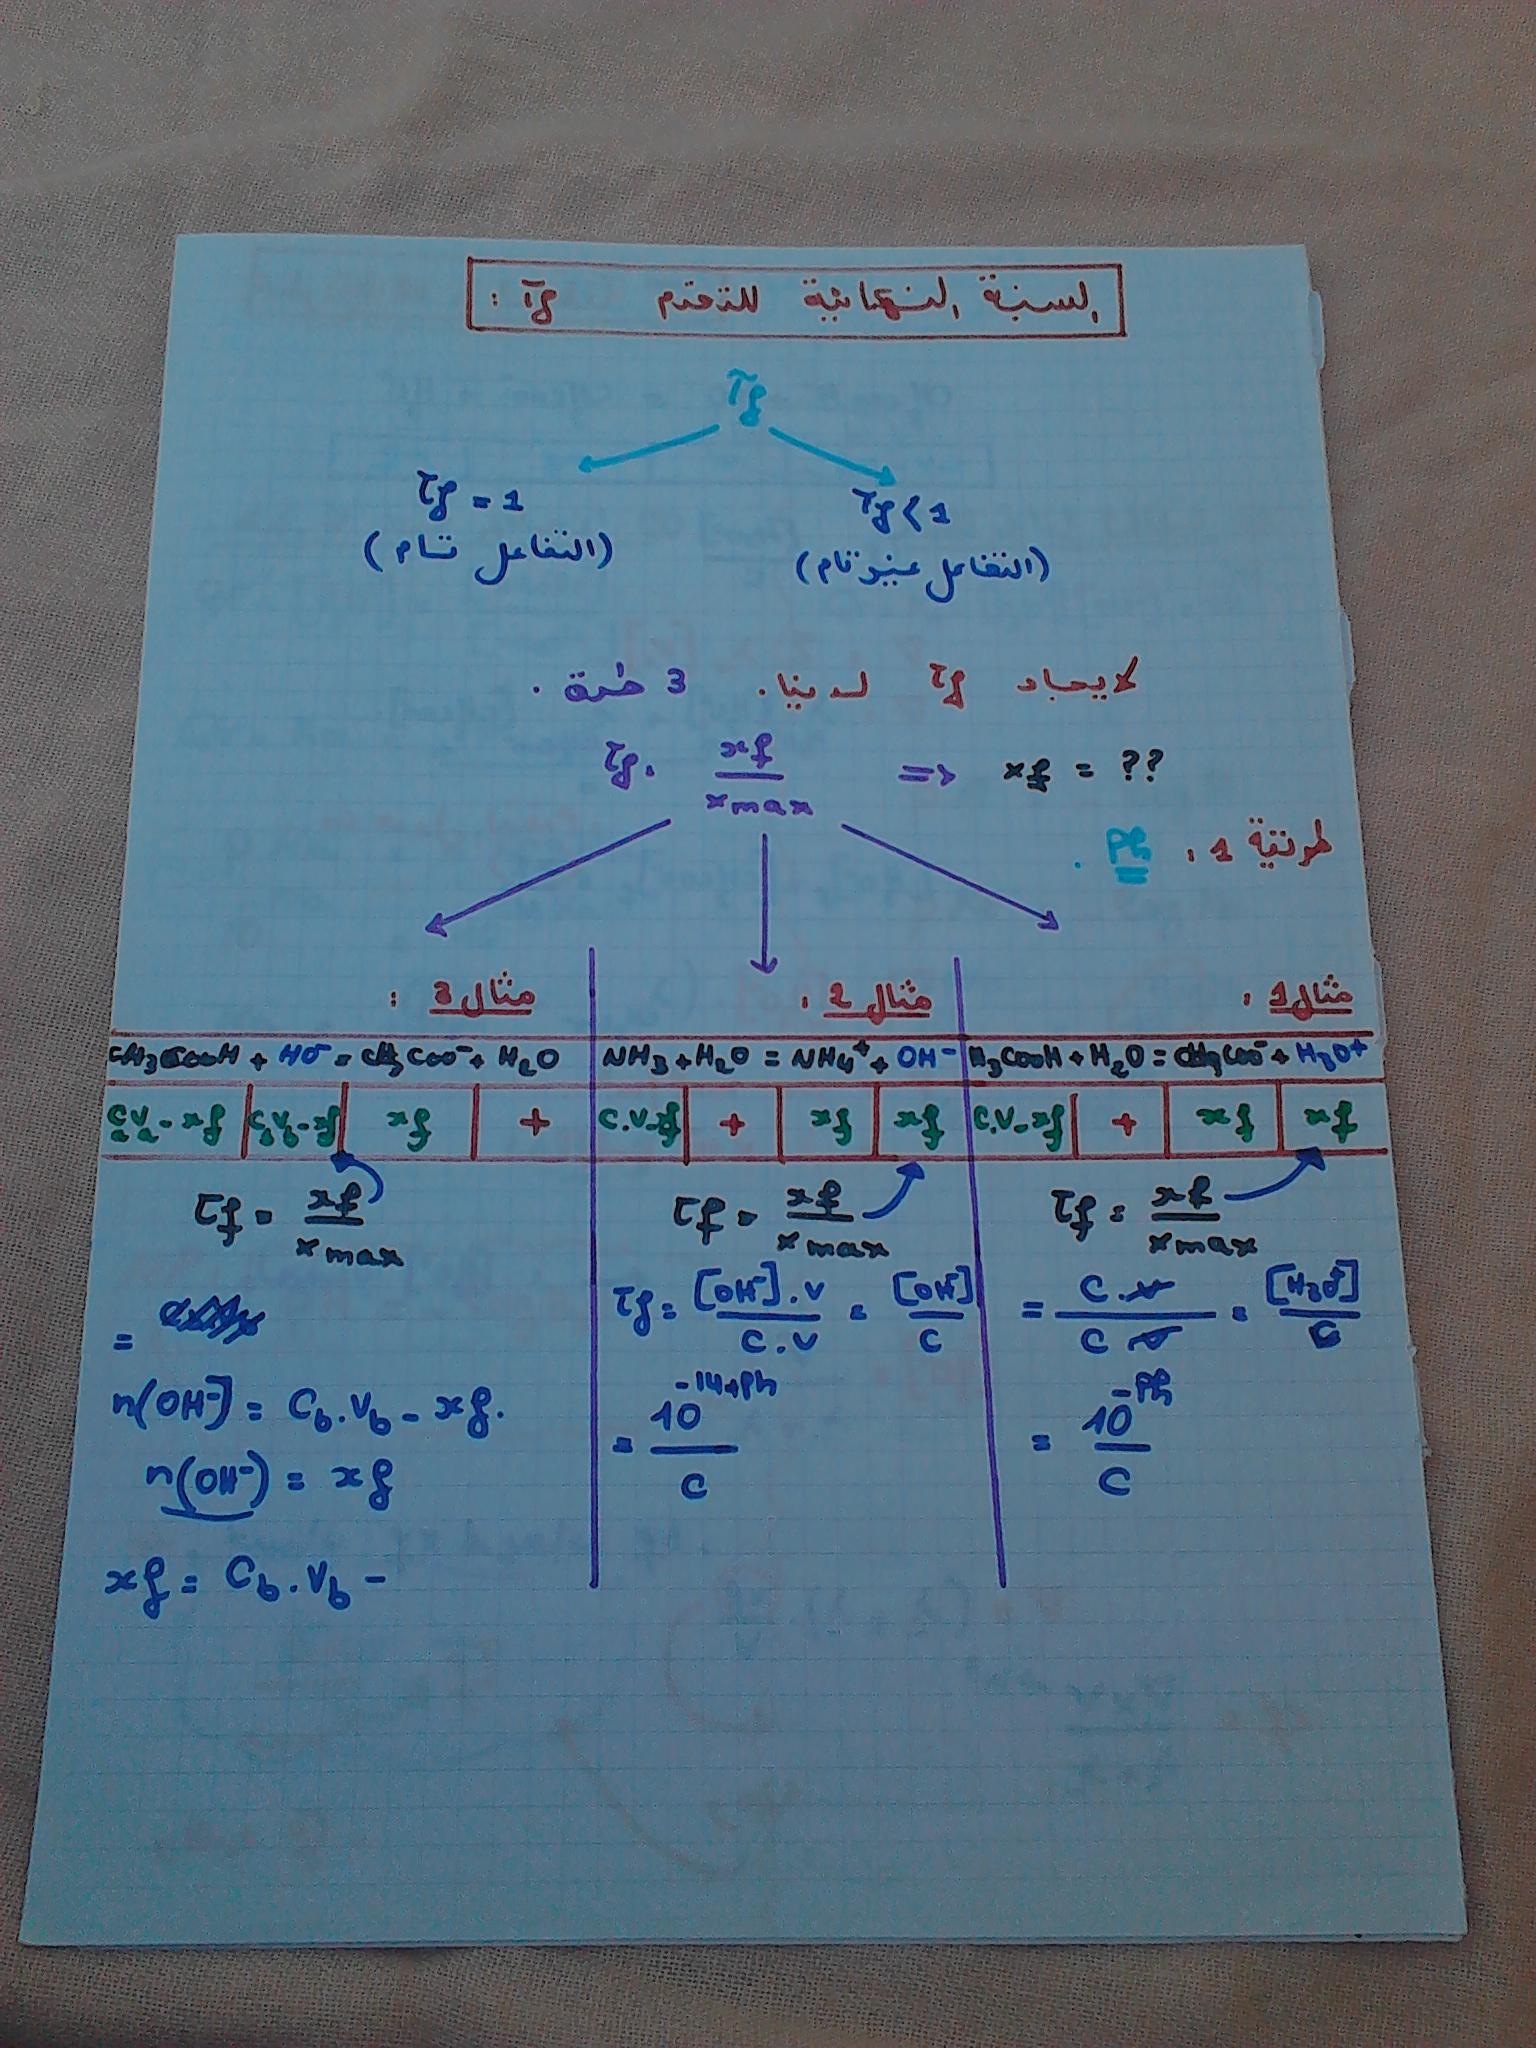 النسبة النهائية للتقدم τf :
τf
τf = 1
τf < 1
(التفاعل تام)
(التفاعل غير تام)
لايجاد τf لدينا. 3 طرق .
τf = xf / xmax => xf = ??
طريقة 1 : Ph .
مثال 1 :
CH3COOH + H2O = CH3COO- + H3O+
C.V-xf | + | xf | xf
τf = xf / xmax
= C.V / C.V = [H3O+] / C
= 10^-Ph / C
مثال 2 :
NH3 + H2O = NH4+ + OH-
C.V-xf | + | xf | xf
τf = xf / xmax
τf = [OH-].V / C.V = [OH-] / C
= 10^-14+Ph / C
مثال 3 :
CH3COOH + HO- = CH3COO- + H2O
CaVa-xf | CbVb-xf | xf | +
τf = xf / xmax
=
n(OH-) = Cb.Vb - xf.
n(OH-) = xf
xf = Cb.Vb -